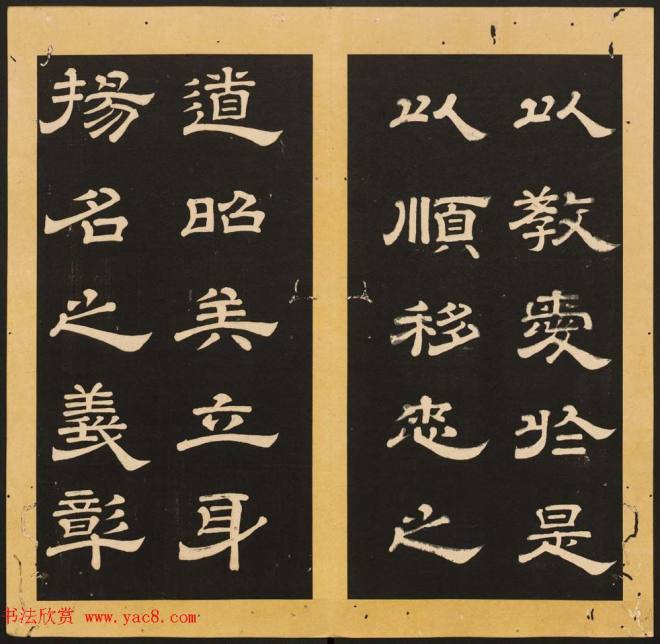 以教愛於是
以順移忠之
道昭矣立身
揚名之義彰
书法欣赏 www.yac8.com